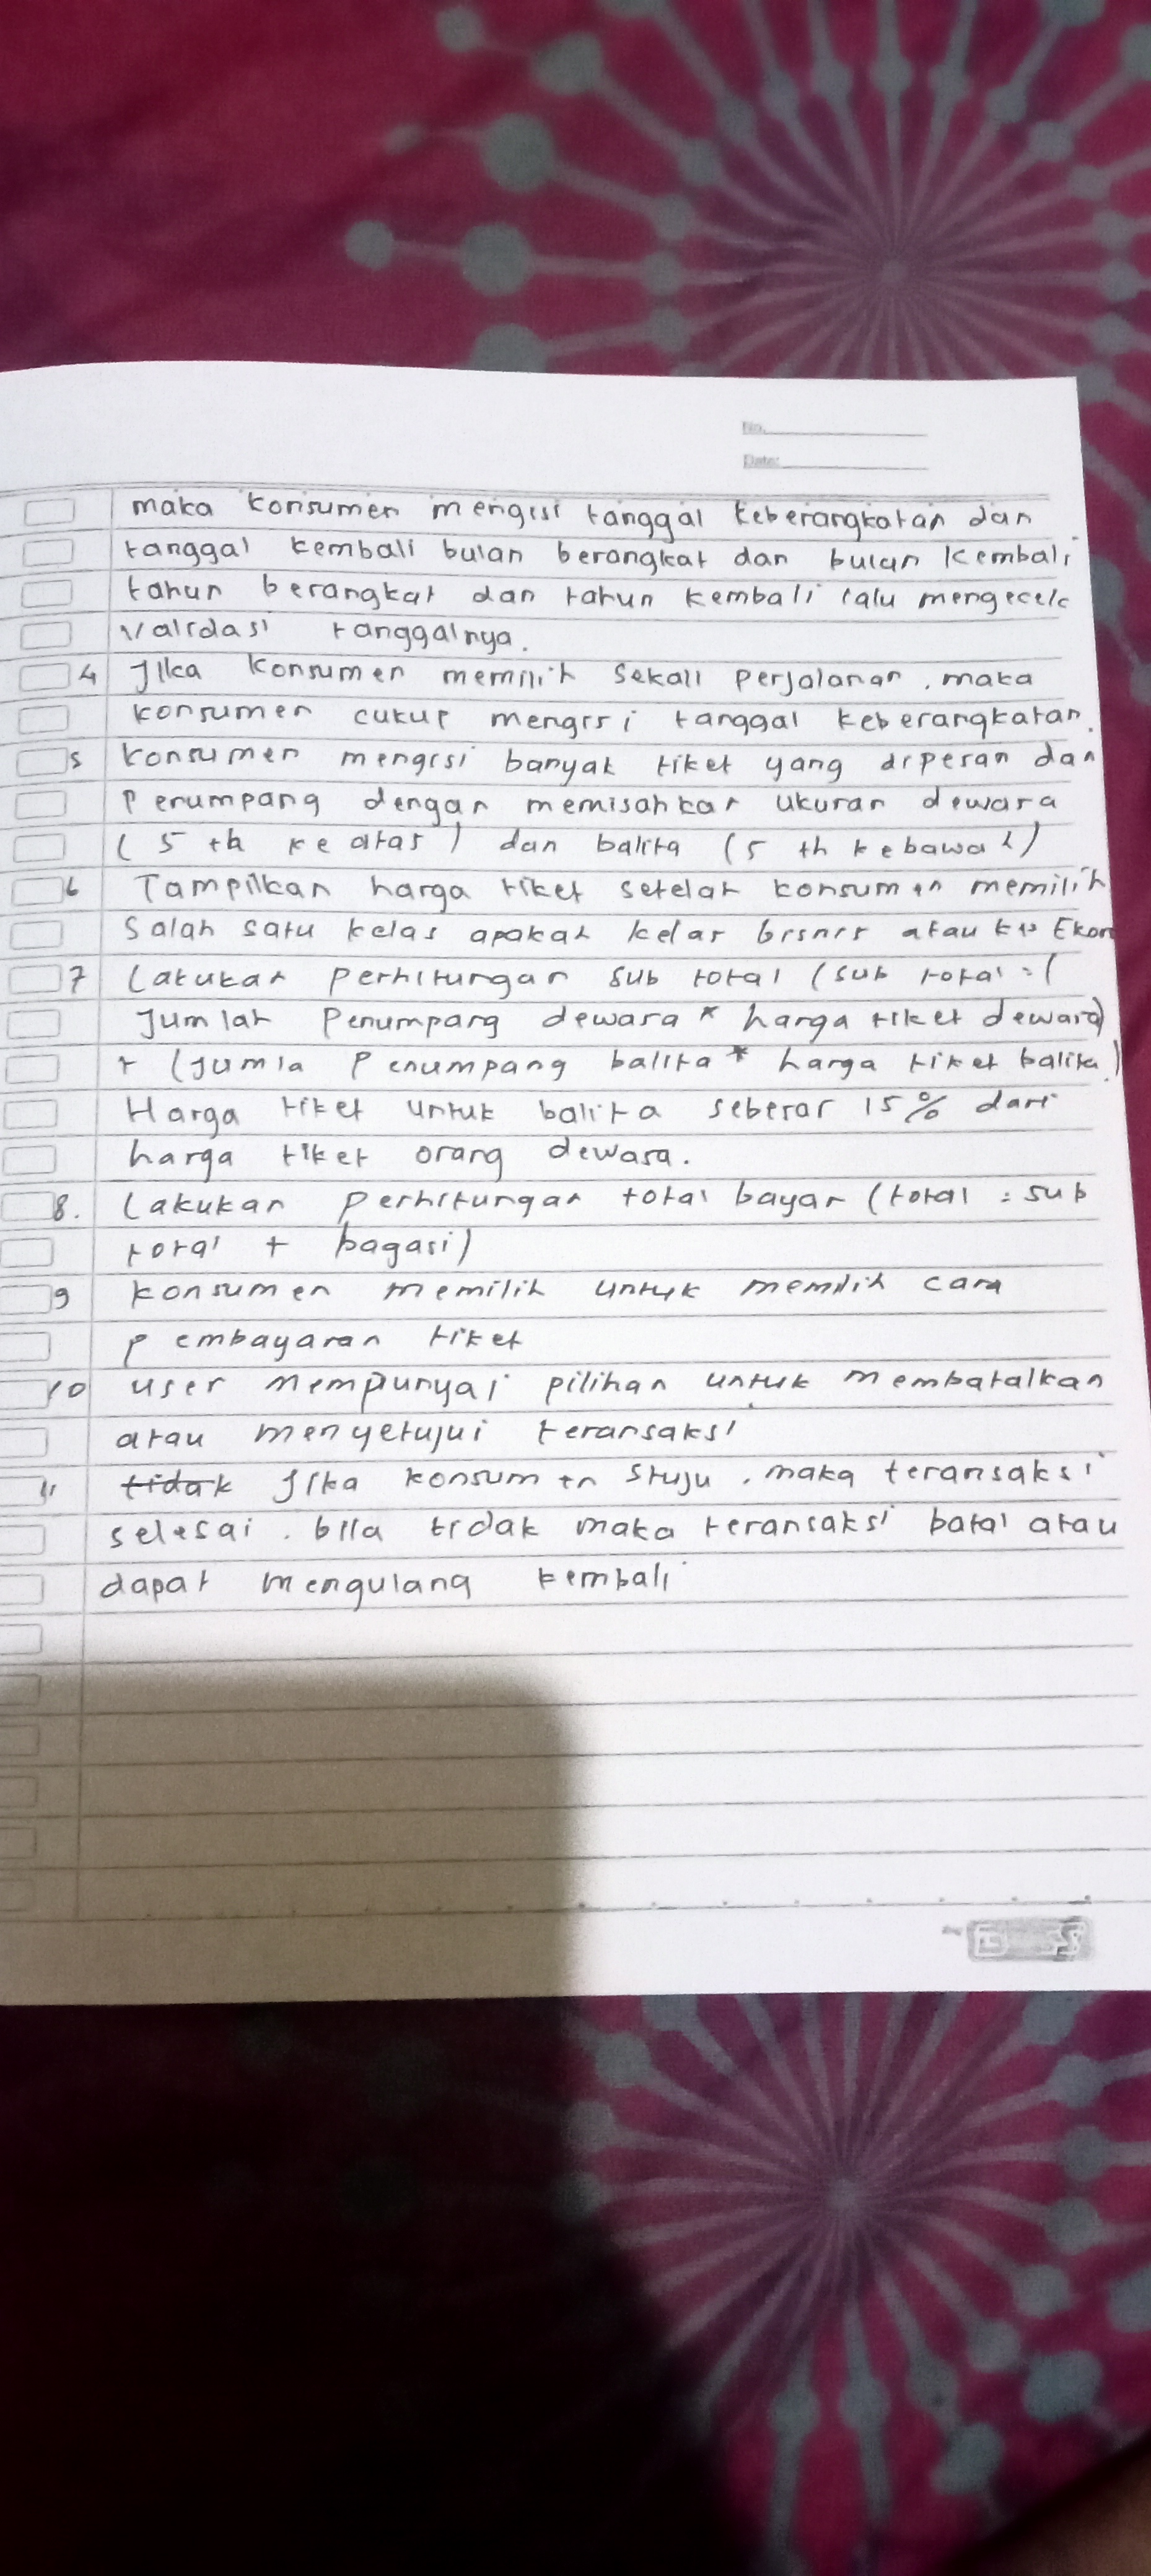 No.
Date:
maka konsumen mengisi tanggal keberangkatan dan
tanggal kembali bulan berangkat dan bulan kembali
tahun berangkat dan tahun kembali lalu mengecek
validasi tanggalnya.
4 Jika konsumen memilih sekali perjalanan, maka
konsumen cukup mengisi tanggal keberangkatan.
5 konsumen mengisi banyak tiket yang dipesan dan
Penumpang dengan memisahkan ukuran dewasa
(5 th ke atas) dan balita (5 th kebawah)
6 Tampilkan harga tiket setelah konsumen memilih
Salah satu kelas apakah kelas bisnis atau Ekon
7 Lakukan Perhitungan sub total (sub total = (
Jumlah Penumpang dewasa * harga tiket dewasa)
+ (Jumla Penumpang balita * harga tiket balita.)
Harga tiket untuk balita sebesar 15% dari
harga tiket orang dewasa.
8. Lakukan perhitungan total bayar (total = sub
total + bagasi)
9 konsumen memilih untuk memilih cara
pembayaran tiket
10 user mempunyai pilihan untuk membatalkan
atau menyetujui teransaksi
11 tidak Jika konsumen stuju, maka teransaksi
selesai. bila tidak maka teransaksi batal atau
dapat mengulang kembali